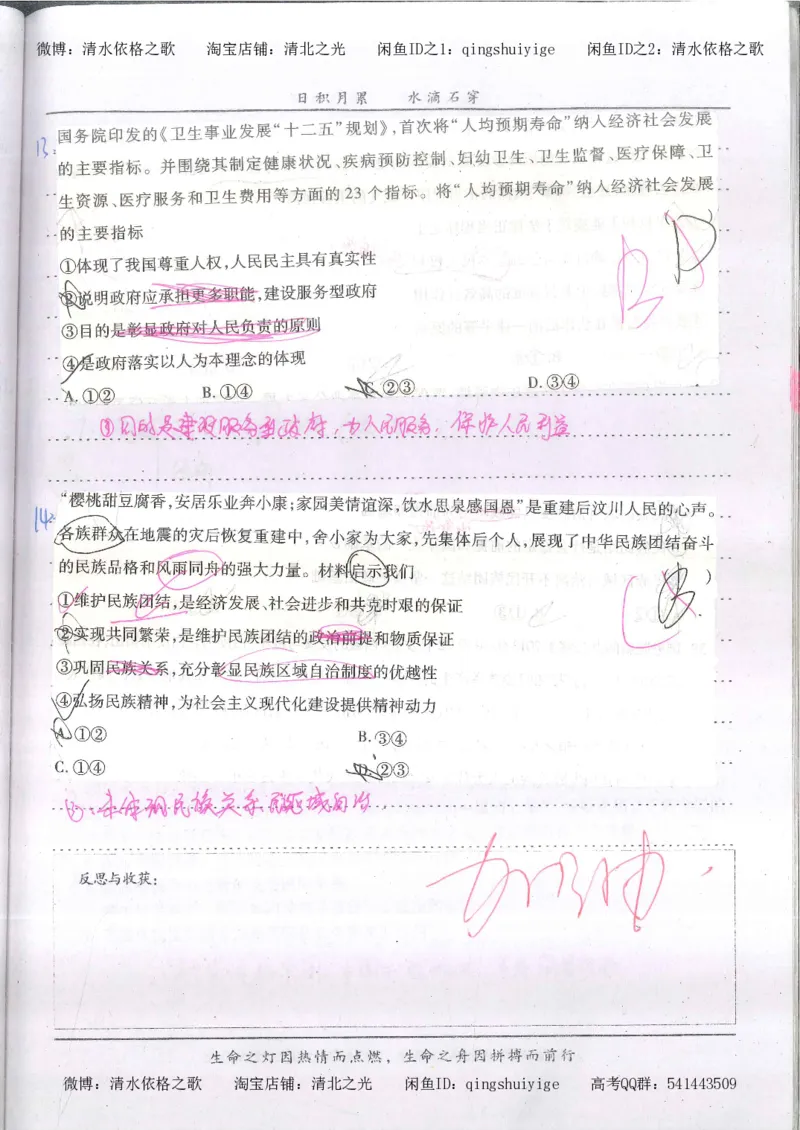 微博：清水依格之歌　　淘宝店铺：清北之光　　闲鱼ID之1：qingshuiyige　　闲鱼ID之2：清水依格之歌
日积月累　　水滴石穿
13. 国务院印发的《卫生事业发展“十二五”规划》，首次将“人均预期寿命”纳入经济社会发展
的主要指标。并围绕其制定健康状况、疾病预防控制、妇幼卫生、卫生监督、医疗保障、卫
生资源、医疗服务和卫生费用等方面的 23 个指标。将“人均预期寿命”纳入经济社会发展
的主要指标
①体现了我国尊重人权，人民民主具有真实性
②说明政府应承担更多职能，建设服务型政府
③目的是彰显政府对人民负责的原则
④是政府落实以人为本理念的体现
A. ①② B. ①④ C. ②③ D. ③④
③目的是建设服务型政府，为人民服务，保护人民利益
14. “樱桃甜豆腐香，安居乐业奔小康；家园美情谊深，饮水思泉感国恩”是重建后汶川人民的心声。
各族群众在地震的灾后恢复重建中，舍小家为大家，先集体后个人，展现了中华民族团结奋斗
的民族品格和风雨同舟的强大力量。材料启示我们 ）
①维护民族团结，是经济发展、社会进步和共克时艰的保证
②实现共同繁荣，是维护民族团结的政治前提和物质保证
③巩固民族关系，充分彰显民族区域自治制度的优越性
④弘扬民族精神，为社会主义现代化建设提供精神动力
A. ①② B. ③④
C. ①④ D. ②③
③：未体现民族关系民族区域自治
反思与收获：
加油
生命之灯因热情而点燃，生命之舟因拼搏而前行
微博：清水依格之歌　　淘宝店铺：清北之光　　闲鱼ID：qingshuiyige　　高考QQ群：541443509